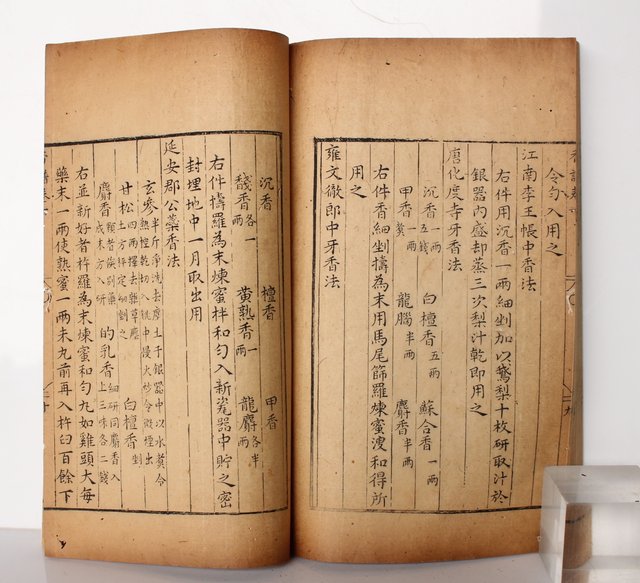 令勻入用之
江南李王帳中香法
右件用沉香一兩細剉加以鵞梨十枚研取汁於
銀器內盛却蒸三次梨汁乾即用之
唐化度寺牙香法
沉香一兩五錢 白檀香五兩 蘇合香一兩
甲香一兩煑 龍腦半兩 麝香半兩
右件香細剉擣為末用馬尾篩羅煉蜜溲和得所
用之
雍文徹郎中牙香法
沉香 檀香 甲香
馢香各一兩 黃熟香一兩 龍麝各半兩
右件擣羅為末煉蜜拌和勻入新瓷器中貯之密
封埋地中一月取出用
延安郡公蘂香法
玄參半斤淨洗去塵土于銀器中以水煑令熟控乾切入銚中慢火炒令微煙出
甘松四兩擇去雜草塵土方秤定細剉之 白檀香剉
麝香顆者俟別藥成末方入研 的乳香細研同麝香入上三味各二錢
右並新好者杵羅為末煉蜜和勻丸如雞頭大每
藥末一兩使熟蜜一兩未丸前再入杵臼百餘下